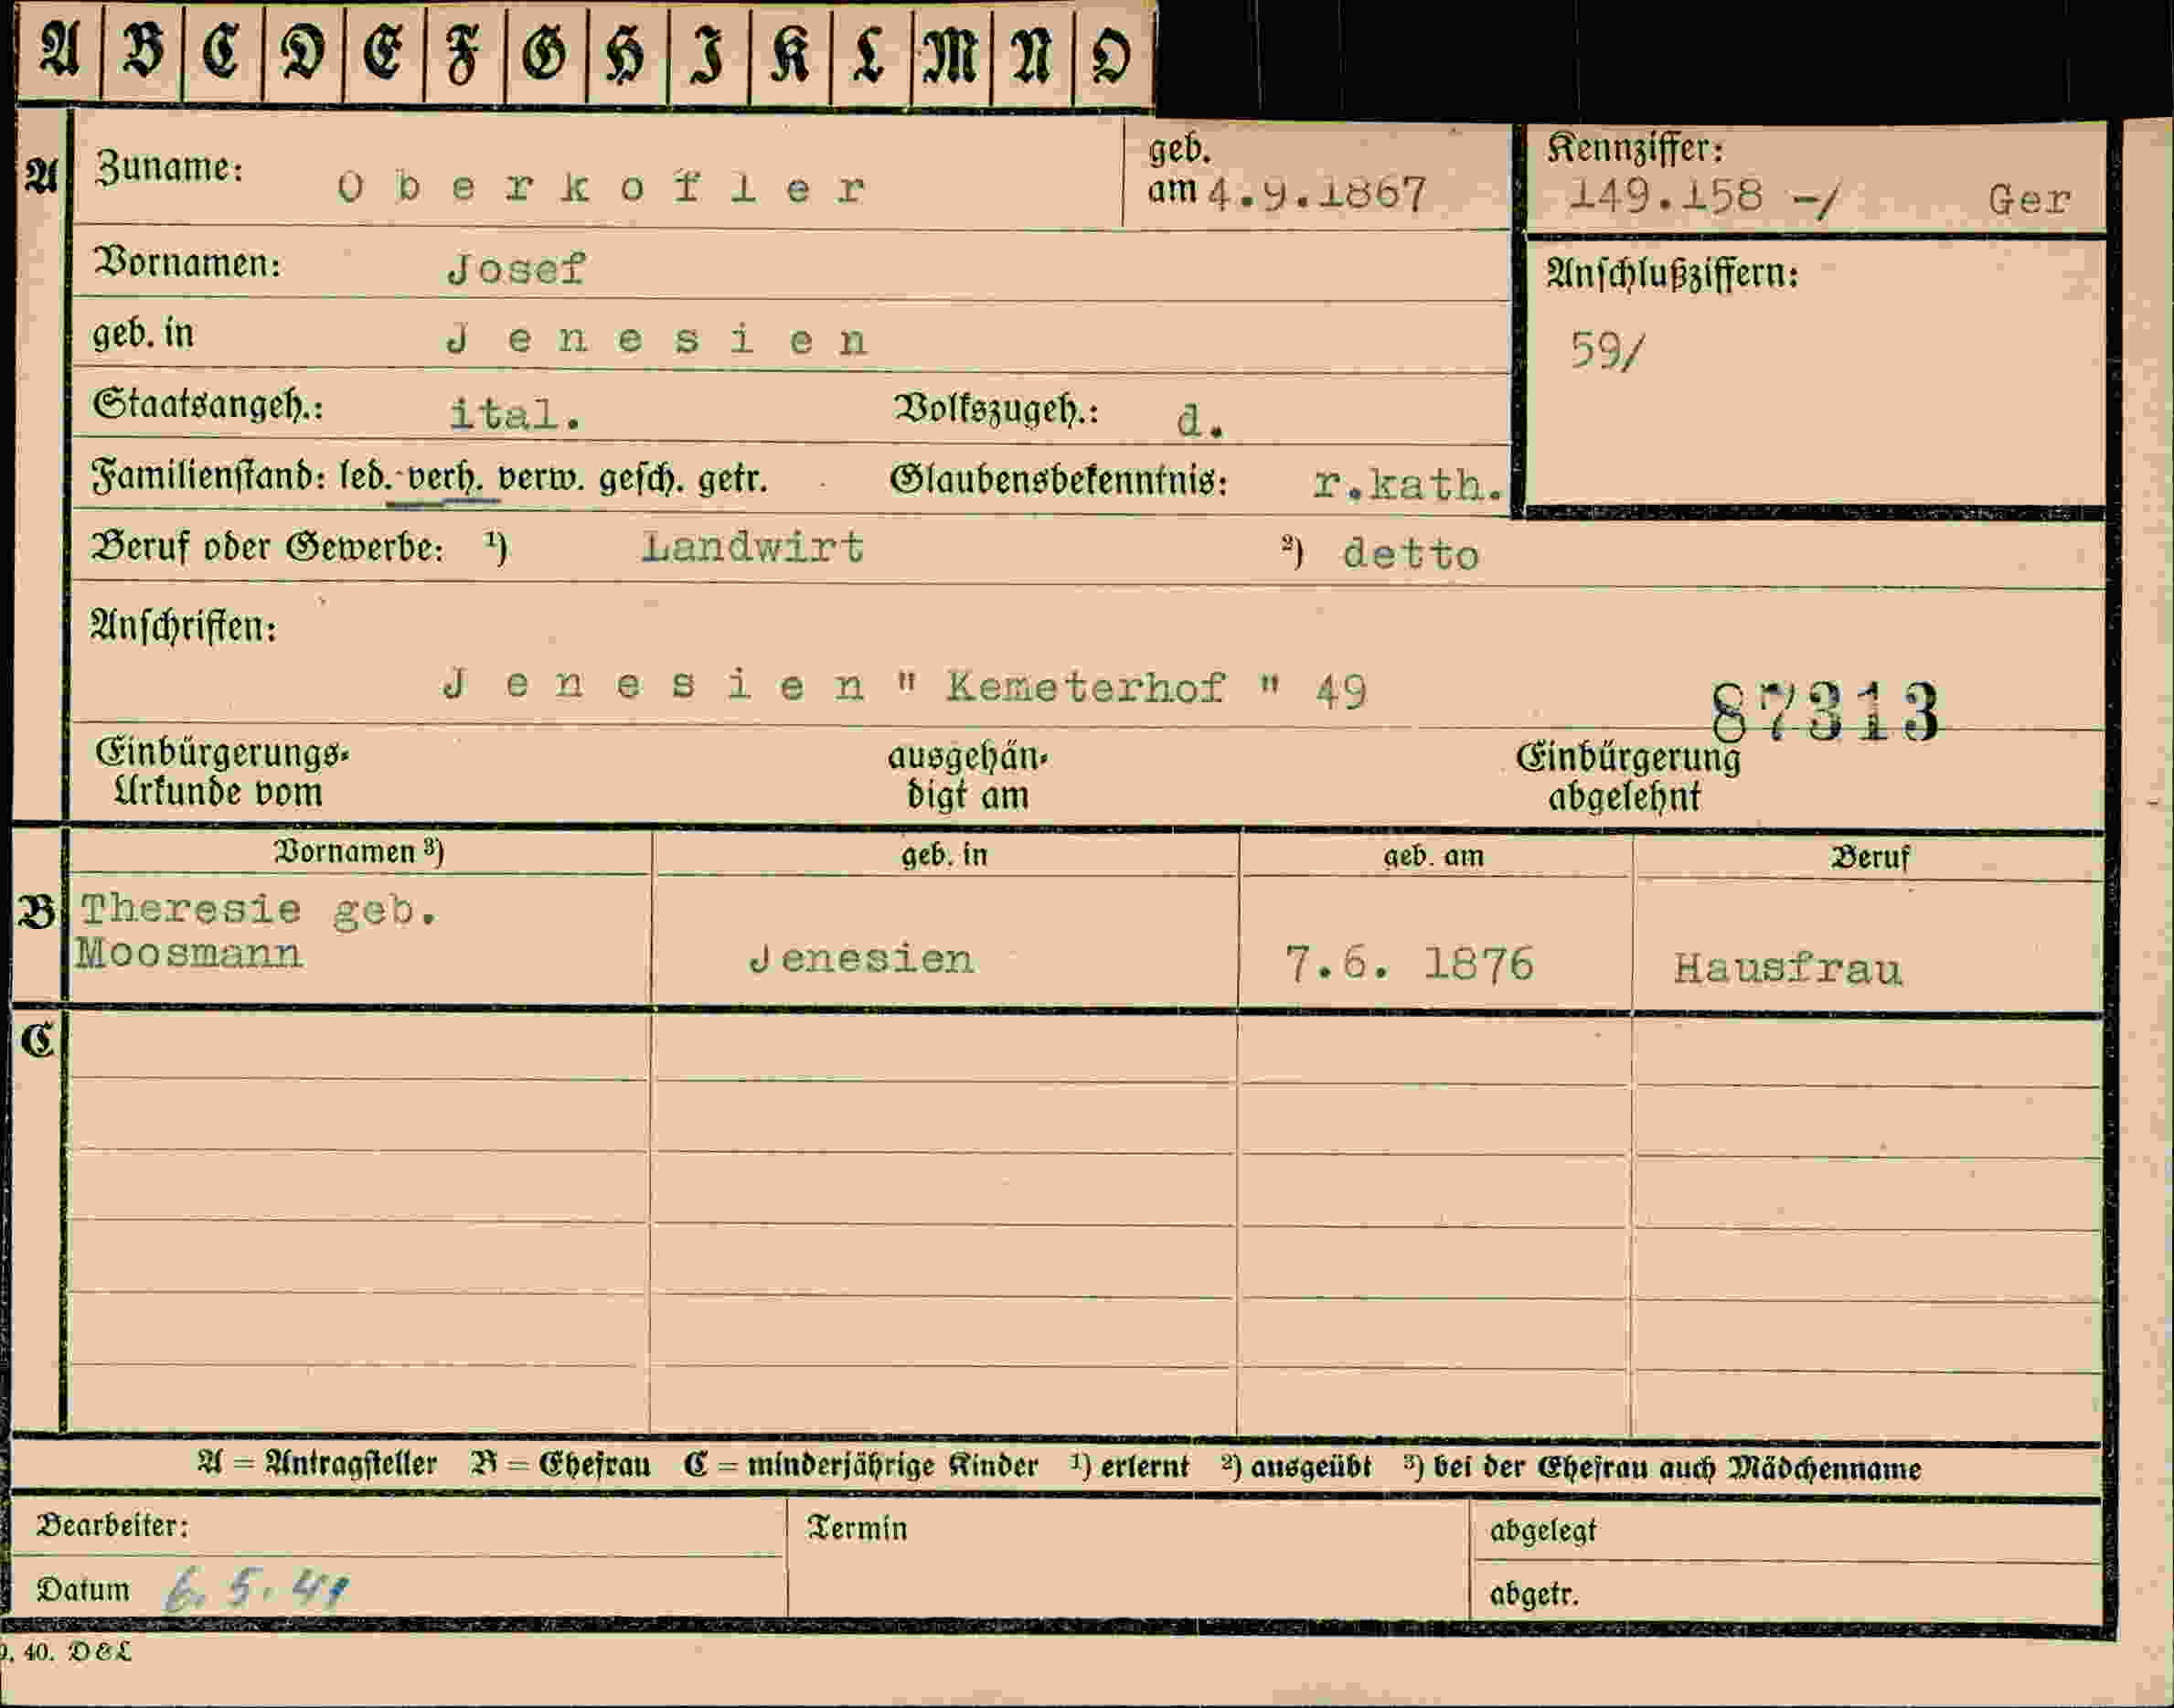 A B C D E F G H I K L M N O
A Zuname: Oberkofler geb. am 4.9.1867 Kennziffer: 149.158 -/ Ger
Vornamen: Josef Anschlußziffern:
geb. in Jenesien 59/
Staatsangeh.: ital. Volkszugeh.: d.
Familienstand: led. verh. verw. gesch. getr. Glaubensbekenntnis: r.kath.
Beruf oder Gewerbe: ¹) Landwirt ²) detto
Anschriften:
Jenesien " Kemeterhof " 49 87313
Einbürgerungs- ausgehän- Einbürgerung
Urkunde vom digt am abgelehnt
Vornamen ³) geb. in geb. am Beruf
B Theresie geb.
Moosmann Jenesien 7.6. 1876 Hausfrau
C
A = Antragsteller B = Ehefrau C = minderjährige Kinder ¹) erlernt ²) ausgeübt ³) bei der Ehefrau auch Mädchenname
Bearbeiter: Termin abgelegt
Datum 6.5.41 abgetr.
9. 40. D&L